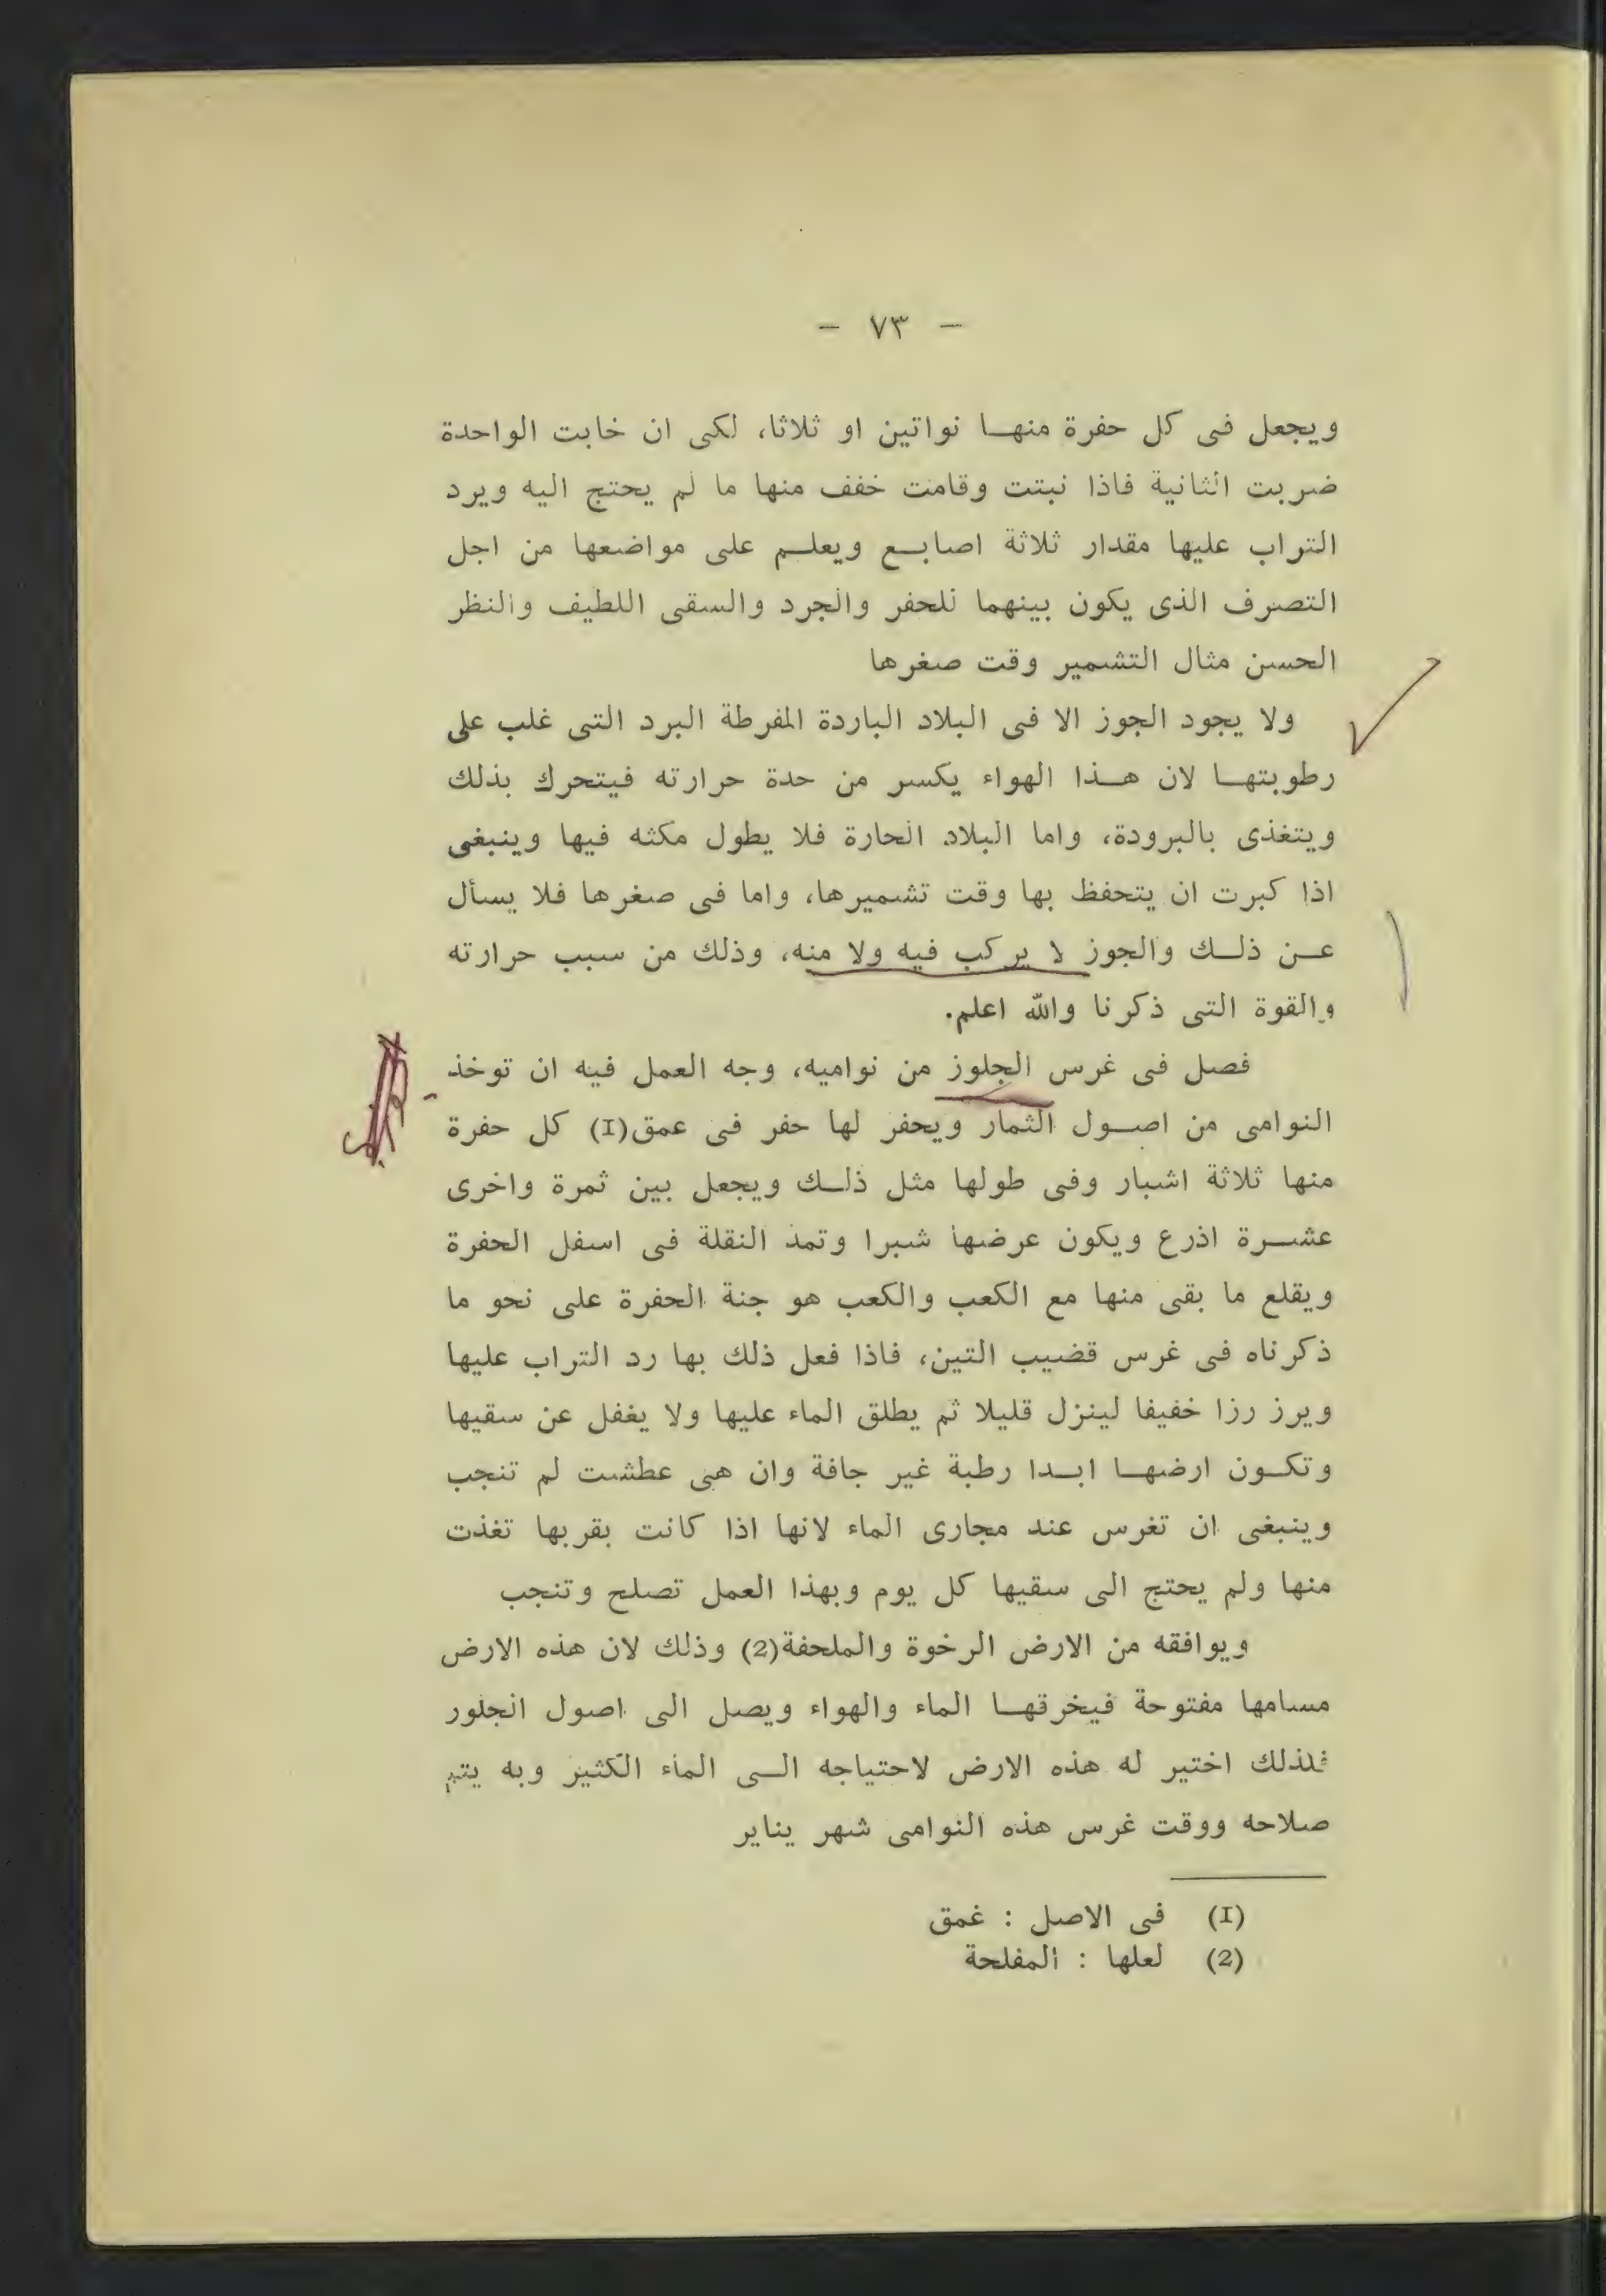 — ٧٣ —
ويجعل فى كل حفرة منهــا نواتين او ثلاثا، لكى ان خابت الواحدة
ضربت الثانية فاذا نبتت وقامت خفف منها ما لم يحتج اليه ويرد
التراب عليها مقدار ثلاثة اصابــع ويعلــم على مواضعها من اجل
التصرف الذى يكون بينهما للحفر والجرد والسقى اللطيف والنظر
الحسن مثال التشمير وقت صغرها
ولا يجود الجوز الا فى البلاد الباردة المفرطة البرد التى غلب على
رطوبتهــا لان هــذا الهواء يكسر من حدة حرارته فيتحرك بذلك
ويتغذى بالبرودة، واما البلاد الحارة فلا يطول مكثه فيها وينبغى
اذا كبرت ان يتحفظ بها وقت تشميرها، واما فى صغرها فلا يسأل
عــن ذلــك والجوز لا يركب فيه ولا منه، وذلك من سبب حرارته
والقوة التى ذكرنا والله اعلم.
فصل فى غرس الجلوز من نواميه، وجه العمل فيه ان توخذ
النوامى من اصــول الثمار ويحفر لها حفر فى عمق(1) كل حفرة
منها ثلاثة اشبار وفى طولها مثل ذلــك ويجعل بين ثمرة واخرى
عشــرة اذرع ويكون عرضها شبرا وتمد النقلة فى اسفل الحفرة
ويقلع ما بقى منها مع الكعب والكعب هو جنة الحفرة على نحو ما
ذكرناه فى غرس قضيب التين، فاذا فعل ذلك بها رد التراب عليها
ويرز رزا خفيفا لينزل قليلا ثم يطلق الماء عليها ولا يغفل عن سقيها
وتكــون ارضهــا ابــدا رطبة غير جافة وان هى عطشت لم تنجب
وينبغى ان تغرس عند مجارى الماء لانها اذا كانت بقربها تغذت
منها ولم يحتج الى سقيها كل يوم وبهذا العمل تصلح وتنجب
ويوافقه من الارض الرخوة والملحفة(2) وذلك لان هذه الارض
مسامها مفتوحة فيخرقهــا الماء والهواء ويصل الى اصول الجلور
فلذلك اختير له هذه الارض لاحتياجه الــى الماء الكثير وبه يتم
صلاحه ووقت غرس هذه النوامى شهر يناير
(1) فى الاصل : غمق
(2) لعلها : المفلحة